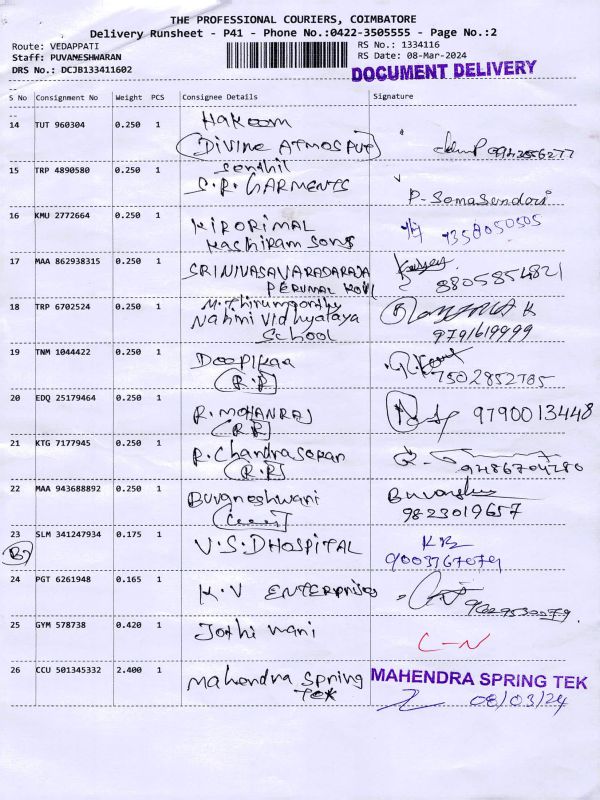 THE PROFESSIONAL COURIERS, COIMBATORE
Delivery Runsheet - P41 - Phone No.:0422-3505555 - Page No.:2
Route: VEDAPPATI
Staff: PUVAMESHWARAN
DRS No.: DCJB133411602
RS No.: 1334116
RS Date: 08-Mar-2024
DOCUMENT DELIVERY
S No Consignment No Weight PCS Consignee Details Signature
14 TUT 960304 0.250 1 Hakeem
DIVINE ATMOSPVT
15 TRP 4890580 0.250 1 Senthil
S.R. GARMENTS P-Somasundari
16 KMU 2772664 0.250 1 KIRORIMAL
Kashiram sons 9358050505
17 MAA 862938315 0.250 1 SRINIVASAVARADARAJA
PERUMAL KOVIL 8805854821
18 TRP 6702524 0.250 1 M. Thirumoorthy
Nahmi Vidhyalaya
School 9791619999
19 TNM 1044422 0.250 1 Deepikaa
(R.P) 7502852785
20 EDQ 25179464 0.250 1 R. MOHANRAJ 9790013448
(R.P)
21 KTG 7177945 0.250 1 R. Chandrasekran
(R.P) 9486704280
22 MAA 943688892 0.250 1 Buvaneshwari
9823019657
23 SLM 341247934 0.175 1 V.S.D HOSPITAL
9003767079
24 PGT 6261948 0.165 1 K.V ENTERPRISES
25 GYM 578738 0.420 1 Jothi Mani C-N
26 CCU 501345332 2.400 1 Mahendra Spring
TEK
MAHENDRA SPRING TEK
08/03/24